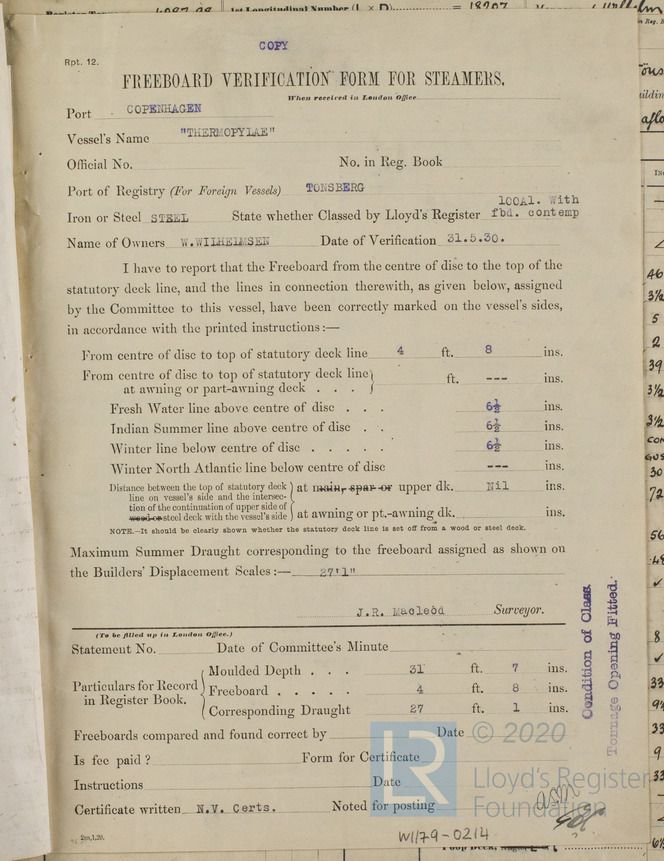 COPY
Rpt. 12.
FREEBOARD VERIFICATION FORM FOR STEAMERS.
When received in London Office
Port COPENHAGEN
Vessel's Name "THERMOPYLAE"
Official No. No. in Reg. Book
Port of Registry (For Foreign Vessels) TONSBERG
100A1. With
Iron or Steel STEEL State whether Classed by Lloyd's Register fbd. contemp
Name of Owners W.WILHELMSEN Date of Verification 31.5.30.
I have to report that the Freeboard from the centre of disc to the top of the
statutory deck line, and the lines in connection therewith, as given below, assigned
by the Committee to this vessel, have been correctly marked on the vessel's sides,
in accordance with the printed instructions:—
From centre of disc to top of statutory deck line 4 ft. 8 ins.
From centre of disc to top of statutory deck line
at awning or part-awning deck . . . ft. --- ins.
Fresh Water line above centre of disc . . . 6½ ins.
Indian Summer line above centre of disc . . 6½ ins.
Winter line below centre of disc . . . . . 6½ ins.
Winter North Atlantic line below centre of disc --- ins.
Distance between the top of statutory deck
line on vessel's side and the intersec-
tion of the continuation of upper side of
wood or steel deck with the vessel's side
at main, spar or upper dk. Nil ins.
at awning or pt.-awning dk. ins.
NOTE.—It should be clearly shown whether the statutory deck line is set off from a wood or steel deck.
Maximum Summer Draught corresponding to the freeboard assigned as shown on
the Builders' Displacement Scales:— 27'1"
J.R. Macleod Surveyor.
(To be filled up in London Office.)
Statement No. Date of Committee's Minute
Particulars for Record
in Register Book.
Moulded Depth . . . 31 ft. 7 ins.
Freeboard . . . . . 4 ft. 8 ins.
Corresponding Draught 27 ft. 1 ins.
Freeboards compared and found correct by Date
Is fee paid? Form for Certificate
Instructions Date
Certificate written N.V. Certs. Noted for posting
2m,1,20.
W1179-0214
Condition of Class
Tonnage Opening Fitted.
LR
© 2020
Lloyd's Register
Foundation